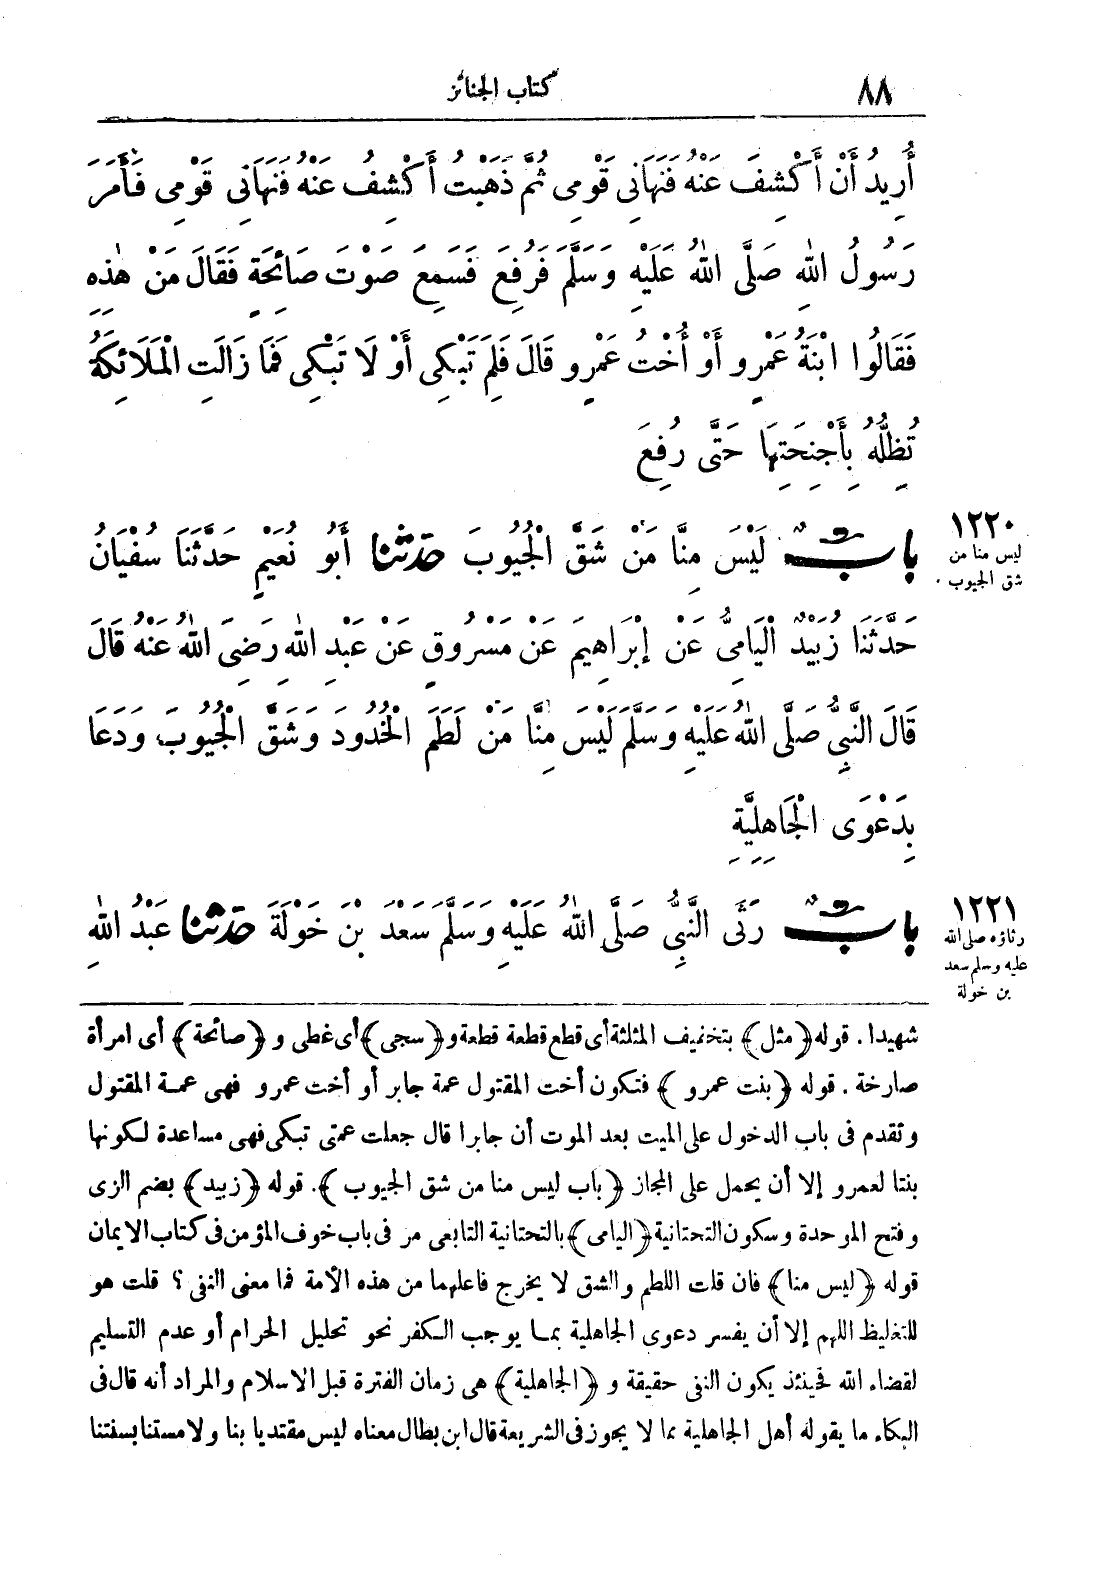 ٨٨
كتاب الجنائز
أُرِيدُ أَنْ أَكْشِفَ عَنْهُ فَنَهَانِى قَوْمِى ثُمَّ ذَهَبْتُ أَكْشِفُ عَنْهُ فَنَهَانِى قَوْمِى فَأَمَرَ
رَسُولُ اللهِ صَلَّى اللهُ عَلَيْهِ وَسَلَّمَ فَرُفِعَ فَسَمِعَ صَوْتَ صَائِحَةٍ فَقَالَ مَنْ هٰذِهِ
فَقَالُوا ابْنَةُ عَمْرٍو أَوْ أُخْتُ عَمْرٍو قَالَ فَلِمَ تَبْكِى أَوْ لَا تَبْكِى فَمَا زَالَتِ الْمَلَائِكَةُ
تُظِلُّهُ بِأَجْنِحَتِهَا حَتَّى رُفِعَ
١٢٢٠
ليس منا من
شق الجيوب
بابٌ لَيْسَ مِنَّا مَنْ شَقَّ الْجُيُوبَ حدثنا أَبُو نُعَيْمٍ حَدَّثَنَا سُفْيَانُ
حَدَّثَنَا زُبَيْدٌ الْيَامِىُّ عَنْ إِبْرَاهِيمَ عَنْ مَسْرُوقٍ عَنْ عَبْدِ اللهِ رَضِىَ اللهُ عَنْهُ قَالَ
قَالَ النَّبِىُّ صَلَّى اللهُ عَلَيْهِ وَسَلَّمَ لَيْسَ مِنَّا مَنْ لَطَمَ الْخُدُودَ وَشَقَّ الْجُيُوبَ وَدَعَا
بِدَعْوَى الْجَاهِلِيَّةِ
١٢٢١
رثاؤه صلى الله
عليه وسلم سعد
بن خولة
بابٌ رَثَى النَّبِىُّ صَلَّى اللهُ عَلَيْهِ وَسَلَّمَ سَعْدَ بْنَ خَوْلَةَ حدثنا عَبْدُ اللهِ
شهيدا . قوله ﴿مثل﴾ بتخفيف المثلثة أى قطع قطعة قطعة و﴿سجى﴾ أى غطى و ﴿صائحة﴾ أى امرأة
صارخة . قوله ﴿بنت عمرو﴾ فتكون أخت المقتول عمة جابر أو أخت عمرو فهى عمة المقتول
وتقدم فى باب الدخول على الميت بعد الموت أن جابرا قال جعلت عمتى تبكى فهى مساعدة لكونها
بنتا لعمرو إلا أن يحمل على المجاز ﴿باب ليس منا من شق الجيوب﴾. قوله ﴿زبيد﴾ بضم الزى
وفتح الموحدة وسكون التحتانية ﴿اليامى﴾ بالتحتانية التابعى مر فى باب خوف المؤمن فى كتاب الايمان
قوله ﴿ليس منا﴾ فان قلت اللطم والشق لا يخرج فاعلهما من هذه الأمة فما معنى النفى ؟ قلت هو
للتغليظ اللهم إلا أن يفسر دعوى الجاهلية بما يوجب الكفر نحو تحليل الحرام أو عدم التسليم
لقضاء الله فحينئذ يكون النفى حقيقة و ﴿الجاهلية﴾ هى زمان الفترة قبل الاسلام والمراد أنه قال فى
البكاء ما يقوله أهل الجاهلية مما لا يجوز فى الشريعة قال ابن بطال معناه ليس مقتديا بنا ولا مستنا بسنتنا